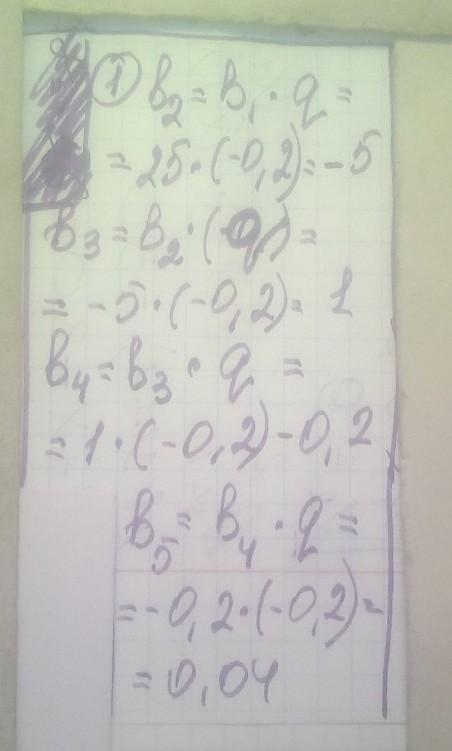 ① b₂ = b₁ · q =
= 25 · (-0,2) = -5
b₃ = b₂ · (q) =
= -5 · (-0,2) = 1
b₄ = b₃ · q =
= 1 · (-0,2) - 0,2
b₅ = b₄ · q =
= -0,2 · (-0,2) =
= 0,04